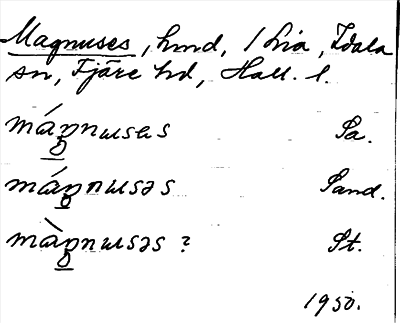 Magnuses, hmd, 1 hia, Idala
sn, Fjäre hd, Hall. l.
máŋnusɘs Sa.
máŋnusəs Sand.
màŋnusəs ? St.
1950.